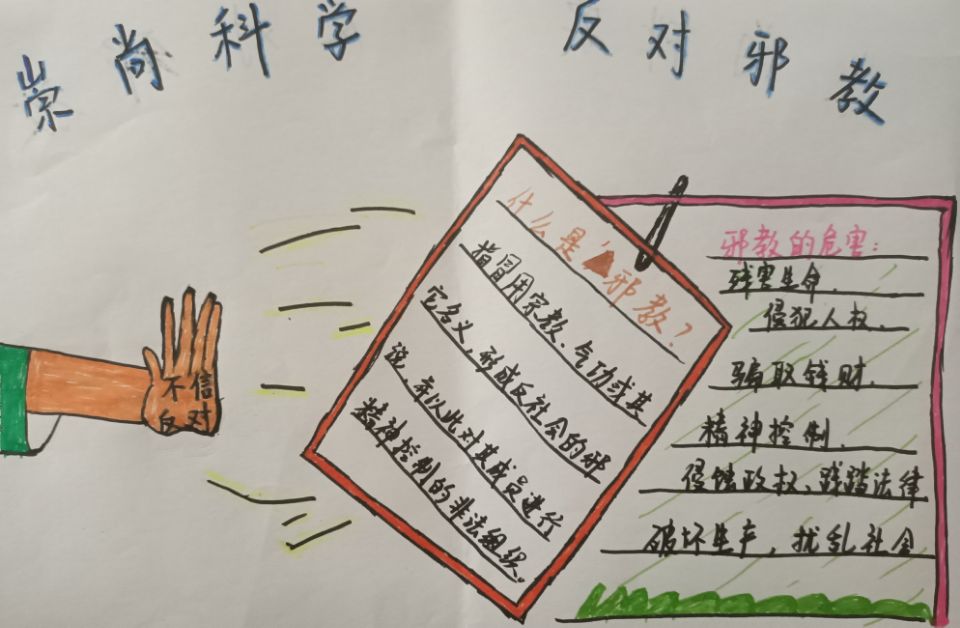 崇尚科学 反对邪教
不信
反对
什么是邪教?
指冒用宗教、气功或其
它名义,形成反社会的邪
说,并以此对其成员进行
精神控制的非法组织。
邪教的危害:
残害生命.
侵犯人权.
骗取钱财.
精神控制.
侵蚀政权、践踏法律
破坏生产,扰乱社会